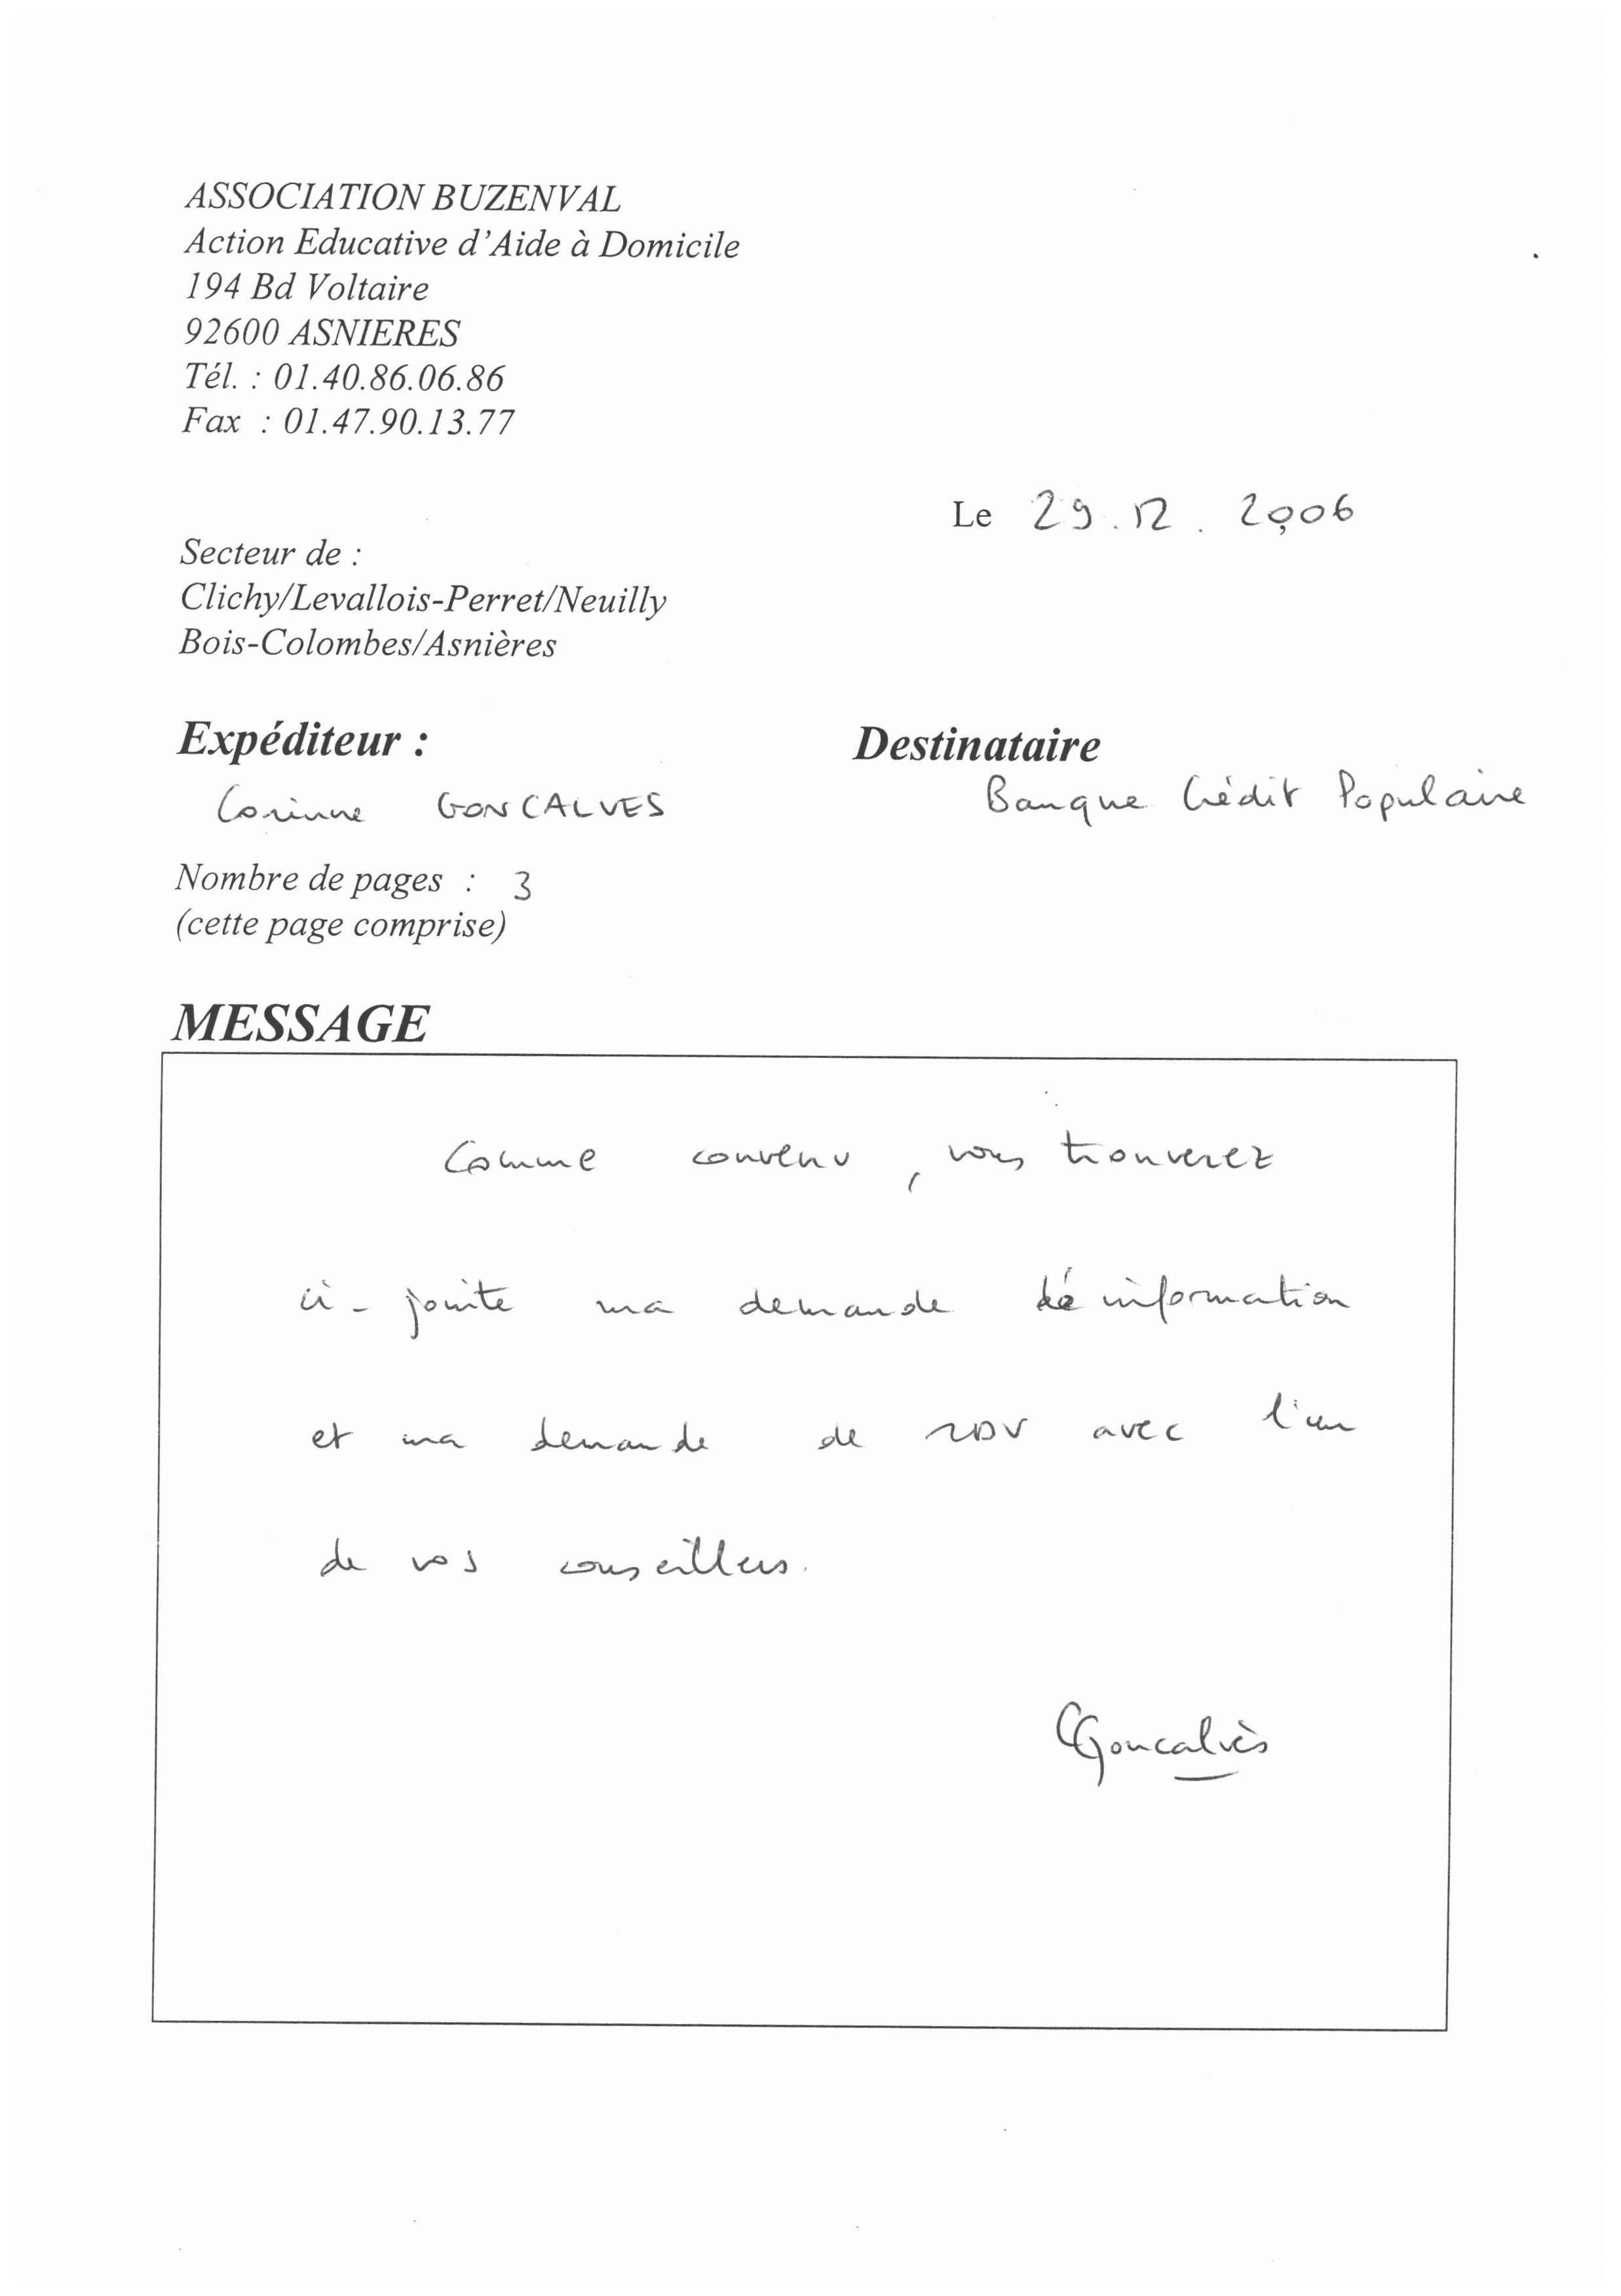 ASSOCIATION BUZENVAL
Action Educative d'Aide à Domicile
194 Bd Voltaire
92600 ASNIERES
Tél. : 01.40.86.06.86
Fax : 01.47.90.13.77
Le 29.12.2006
Secteur de :
Clichy/Levallois-Perret/Neuilly
Bois-Colombes/Asnières
Expéditeur : Destinataire
Corinne GONCALVES Banque Crédit Populaire
Nombre de pages : 3
(cette page comprise)
MESSAGE
Comme convenu, vous trouverez
ci-jointe ma demande d'information
et ma demande de RDV avec l'un
de vos conseillers.
CGoncalvès